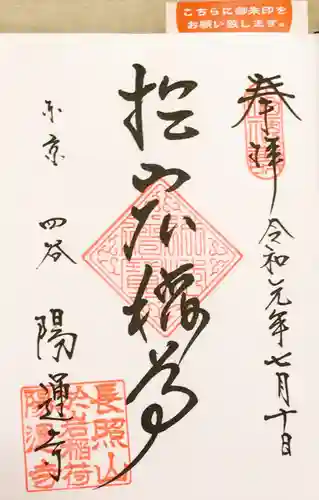 こちらに御朱印を
お願い致します。
奉拝
令和元年七月十日
於岩稲荷
東京 四谷 陽運寺
長照山
於岩稲荷
陽運寺